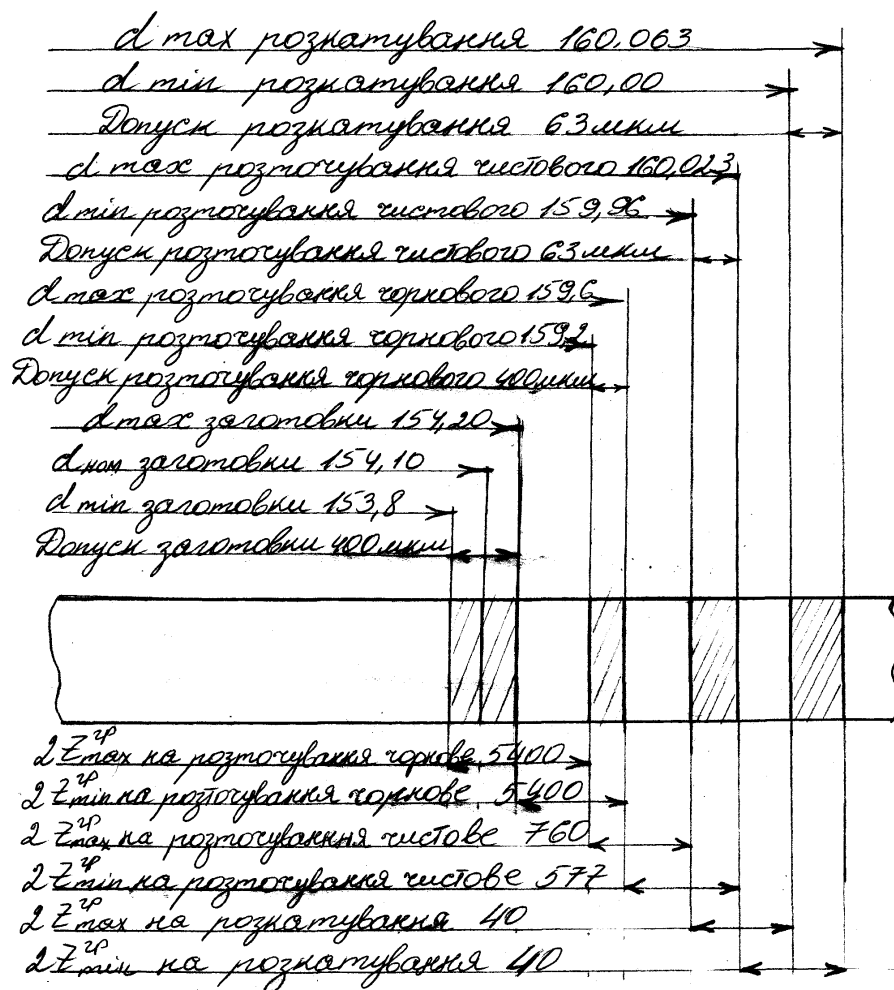 d max розкатування 160.063
d min розкатування 160,00
Допуск розкатування 63 мкм
d max розточування чистового 160,023
d min розточування чистового 159,96
Допуск розточування чистового 63 мкм
d max розточування чорнового 159,6
d min розточування чорнового 159,2
Допуск розточування чорнового 400 мкм
d max заготовки 154,20
d ном заготовки 154,10
d min заготовки 153,8
Допуск заготовки 400 мкм
2 Z гр max на розточування чорнове 5400
2 Z гр min на розточування чорнове 5400
2 Z гр max на розточування чистове 760
2 Z гр min на розточування чистове 577
2 Z гр max на розкатування 40
2 Z гр min на розкатування 40